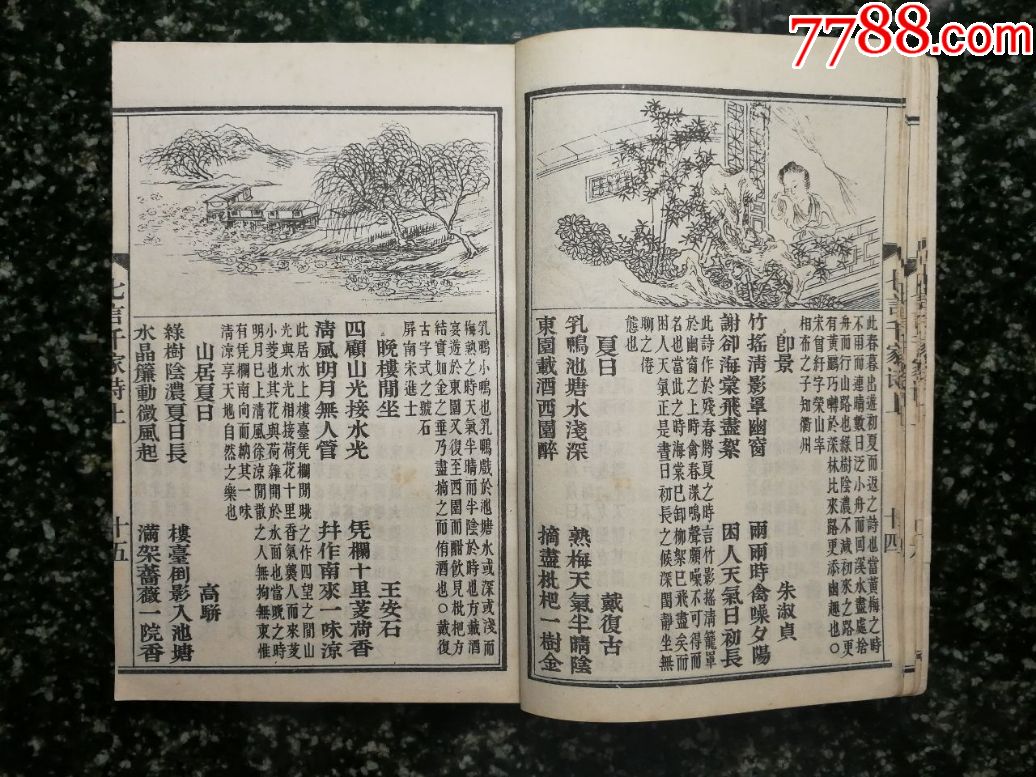 7788.com
此春暮出遊初夏而返之詩也當黃梅之時
不雨而連晴數日泛小舟而回溪水盡處捨
舟而行山路也綠樹陰濃不減初來之路更
有黃鸝巧囀於深林比來路更添幽趣也○
宋曾紆字榮山宰
相布之子知衢州
卽景 朱淑貞
竹搖淸影罩幽窗 兩兩時禽噪夕陽
謝却海棠飛盡絮 困人天氣日初長
此詩作於殘春將夏之時言竹影搖淸籠罩
於幽窗之時禽春深鳴聲頗噪不可得而
名也當此之時海棠已卸柳絮已飛盡矣而
困人天氣正是晝日初長之候深閨靜坐無
聊之倦
態也
夏日 戴復古
乳鴨池塘水淺深 熟梅天氣半晴陰
東園載酒西園醉 摘盡枇杷一樹金
七言千家詩上 十四
乳鴨小鴨也乳鴨戲於池塘水或深或淺而
梅熟之時天氣半晴而半陰於時也方載酒
宴遊於東園又復至西園而酣飮見枇杷方
結實如金之垂乃盡摘之而侑酒也○戴復
古字式之號石
屏南宋進士
晚樓閒坐 王安石
四顧山光接水光 凭欄十里芰荷香
淸風明月無人管 幷作南來一味涼
此居水上樓臺凭欄閒眺之作四望之間山
光與水光相接荷花十里香氣襲人而來芰
小菱也其花與荷雜開於水面也當晚之時
明月已上淸風徐涼閒散之人無拘無束惟
有凭欄南向而納其一味
淸涼享天地自然之樂也
山居夏日 高駢
綠樹陰濃夏日長 樓臺倒影入池塘
水晶簾動微風起 滿架薔薇一院香
七言千家詩上 十五